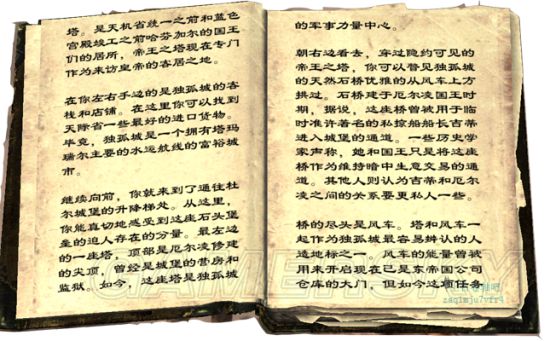 塔。是天机省统一之前和蓝色
宫殿竣工之前哈芬加尔的国王
们的居所，帝王之塔现在专门
作为来访皇帝的客居之地。
在你左右手边的是独孤城的客
栈和店铺。在这里你可以找到
天际省一些最好的进口货物。
毕竟，独孤城是一个拥有塔玛
瑞尔主要的水运航线的富裕城
市。
继续向前，你就来到了通往杜
尔城堡的升降梯处。从这里，
你能真切地感受到这座石头堡
垒的迫人存在的分量。最左边
的一座塔，顶部是厄尔凌修建
的尖顶，曾经是城堡的营房和
监狱。如今，这座塔是独孤城
的军事力量中心。
朝右边看去，穿过隐约可见的
帝王之塔，你可以瞥见独孤城
的天然石桥优雅的从风车上方
拱过。石桥建于厄尔凌国王时
期，据说，这座桥曾被用于临
时准许著名的私掠船船长吉蒂
进入城堡的通道。一些历史学
家声称，她和国王只是将这座
桥作为维持暗中生意交易的通
道。其他人则认为吉蒂和厄尔
凌之间的关系要更私人一些。
桥的尽头是风车。塔和风车一
起作为独孤城最容易辨认的人
造地标之一，风车的能量曾被
用来开启现在已是东帝国公司
仓库的大门，但如今这项任务
GAMERSKY
zaqimju7vfr4